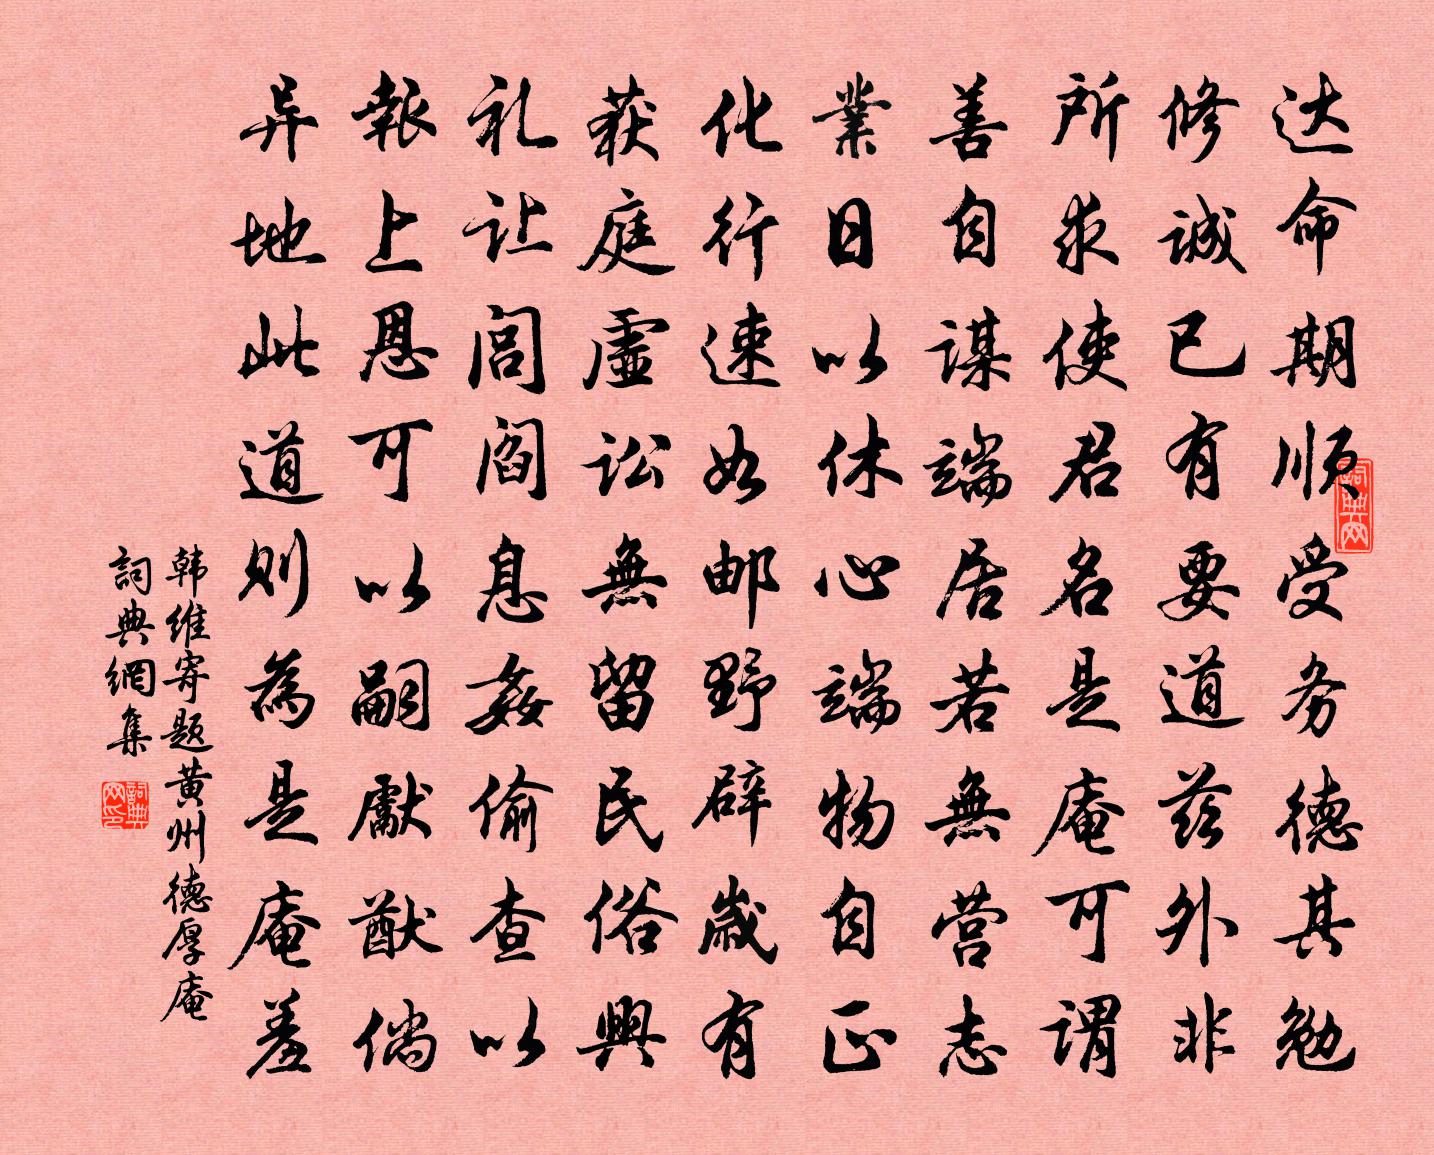 达命期顺受务德其勉
修诚已有要道兹外非
所求使君名是庵可谓
善自谋端居若無营志
業日以休心端物自正
化行速如邮野辟歲有
获庭虚讼無留民俗興
礼让閭阎息姦偷查以
報上恩可以嗣獻猷倘
异地此道则為是庵羞
韩维寄题黄州德厚庵
詞典網集
詞典网
詞典网印